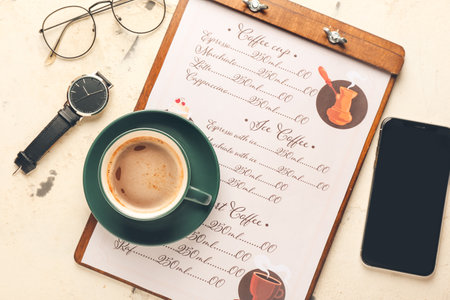 Coffee cup
Espresso 250ml 00
Macchiato 250ml 00
Latte 250ml 00
Cappuccino 250ml 00
250ml 00
Ice Coffee
Espresso with ice 250ml 00
with ice 250ml 00
250ml 00
250ml 00
Coffee
250ml 00
250ml 00
Raf 250ml 00